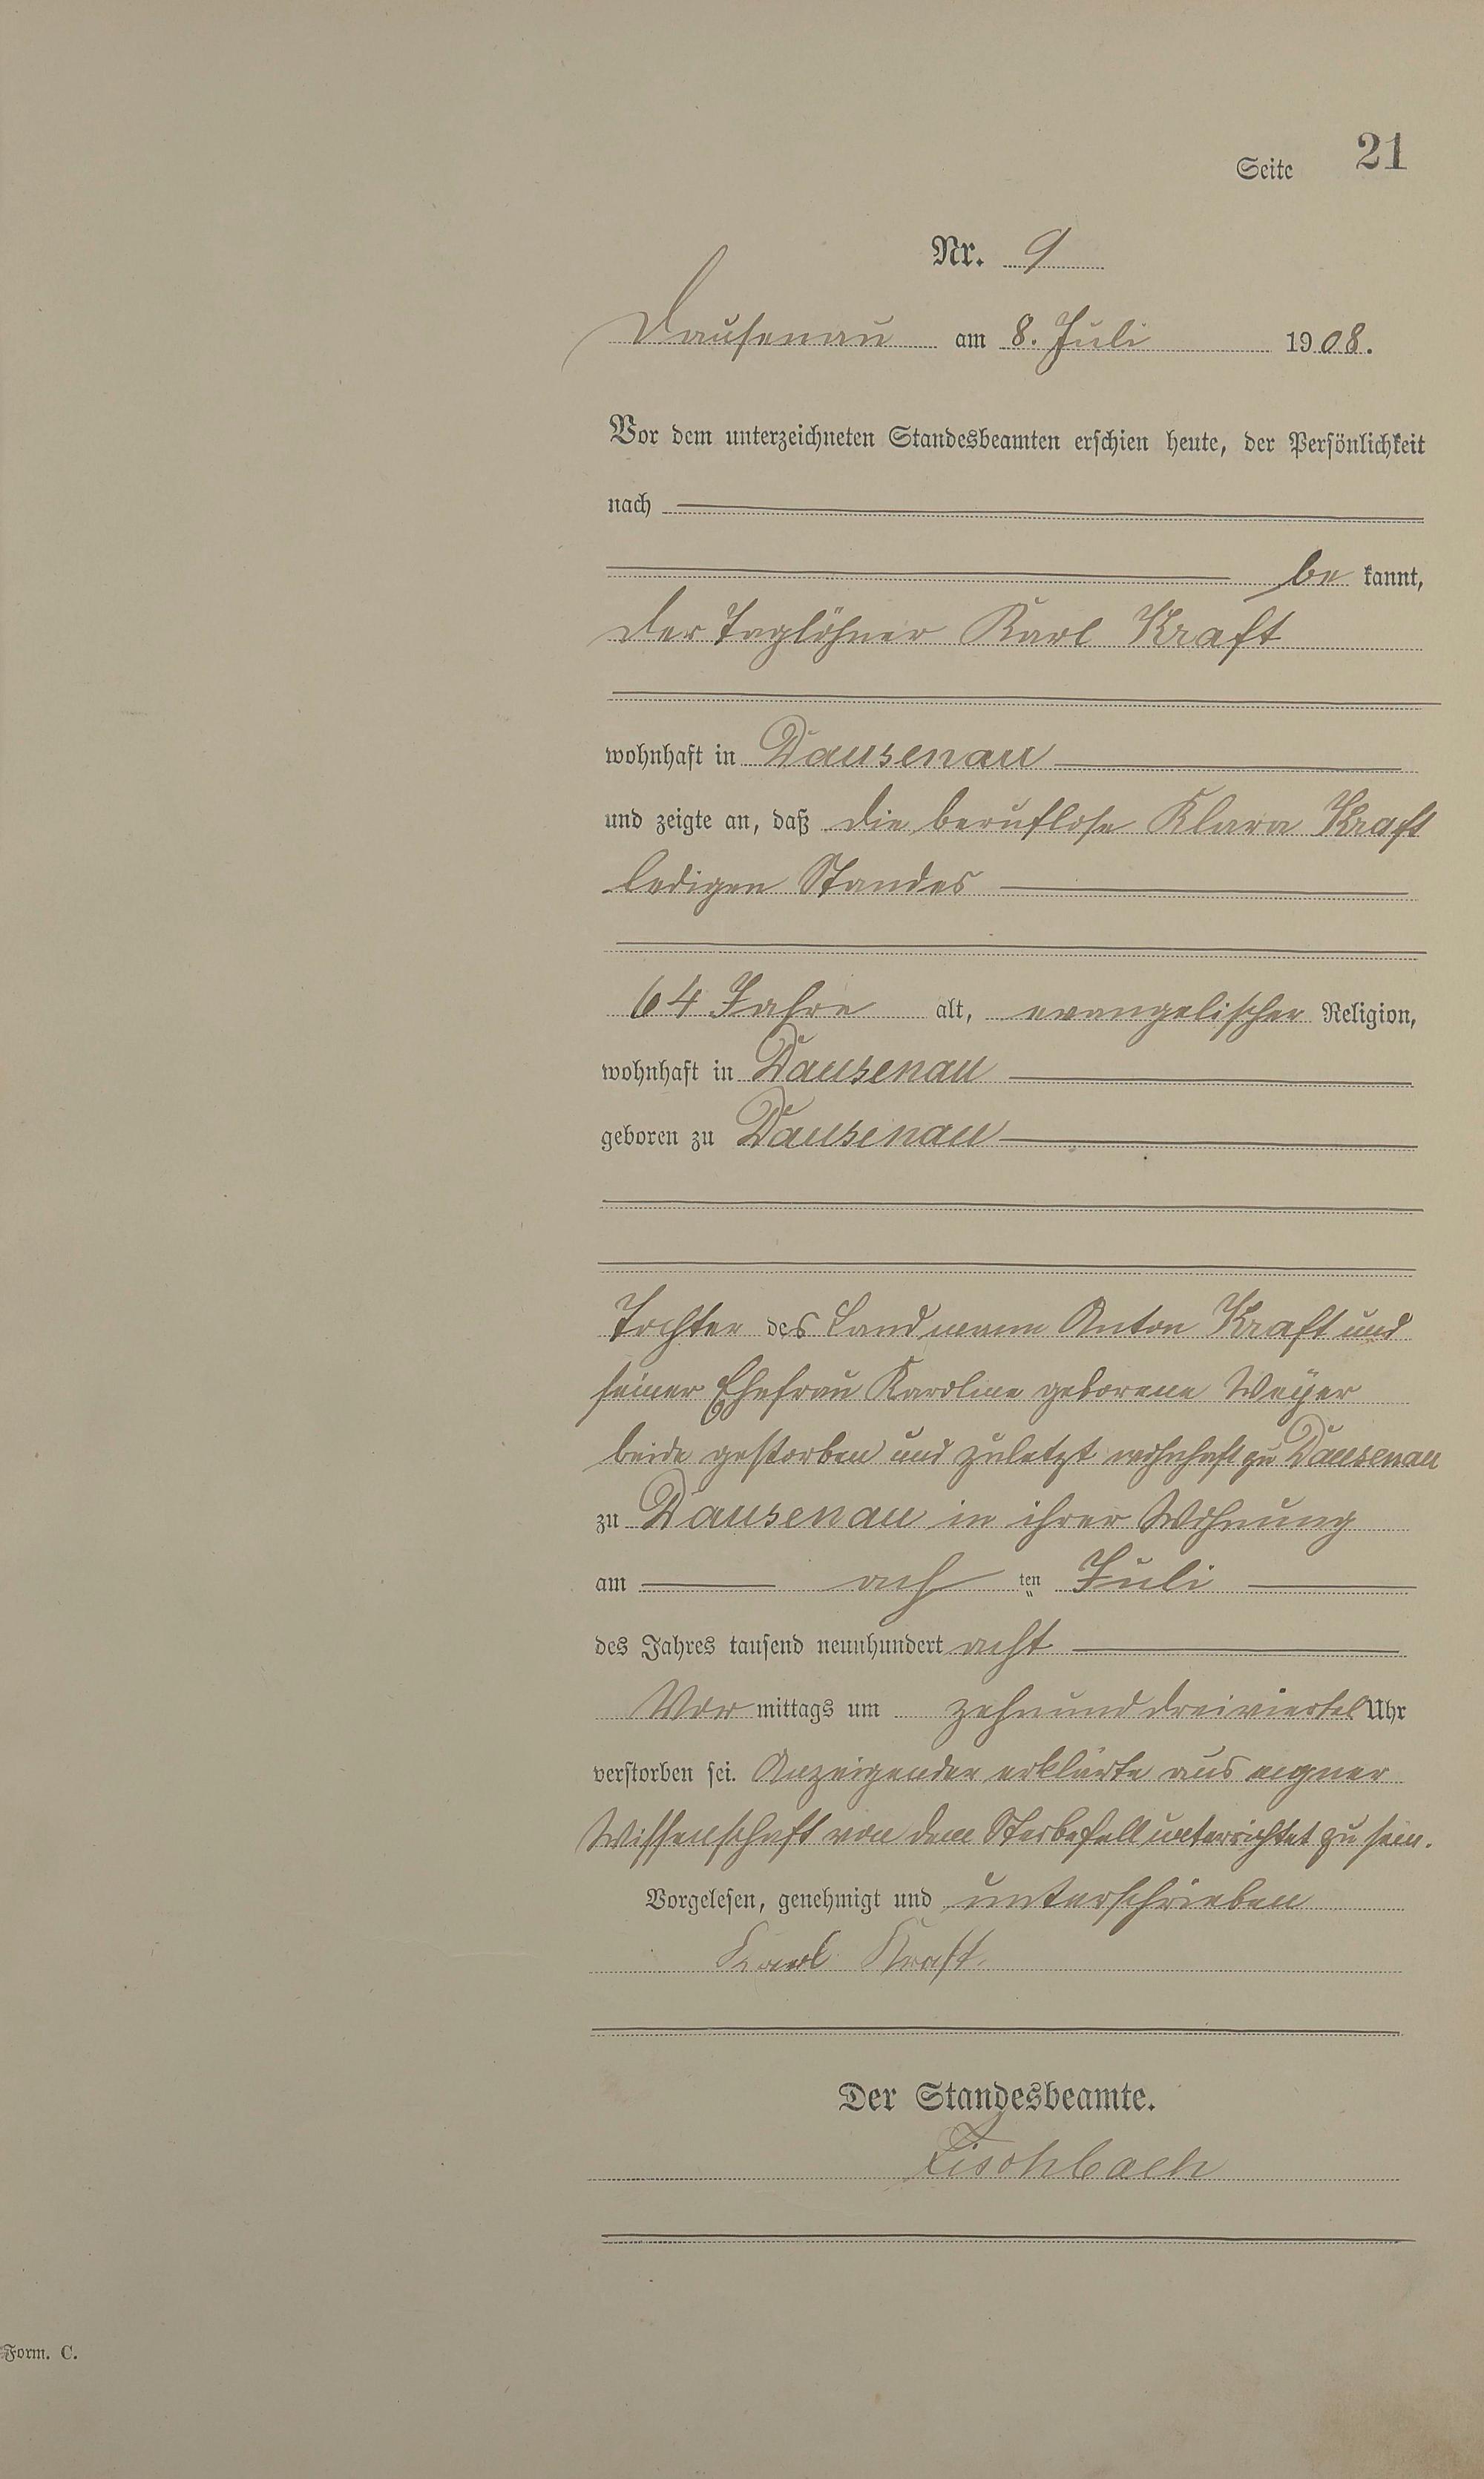 Seite 21
Nr. 9
Dausenau am 8. Juli 1908.
Vor dem unterzeichneten Standesbeamten erschien heute, der Persönlichkeit
nach
be kannt,
der Taglöhner Karl Kraft
wohnhaft in Dausenau
und zeigte an, daß die beruflose Klara Kraft
ledigen Standes
64 Jahre alt, evangelischer Religion,
wohnhaft in Dausenau
geboren zu Dausenau
Tochter des Landmann Anton Kraft und
seiner Ehefrau Karoline geborene Weyer
beide gestorben und zuletzt wohnhaft zu Dausenau
zu Dausenau in ihrer Wohnung
am ach ten Juli
des Jahres tausend neunhundert acht
Vor mittags um zehn und dreiviertel Uhr
verstorben sei. Anzeigender erklärte aus eigner
Wissenschaft von dem Sterbefall unterrichtet zu sein.
Vorgelesen, genehmigt und unterschrieben
Karl Kraft.
Der Standesbeamte.
Fischbach
Form. C.